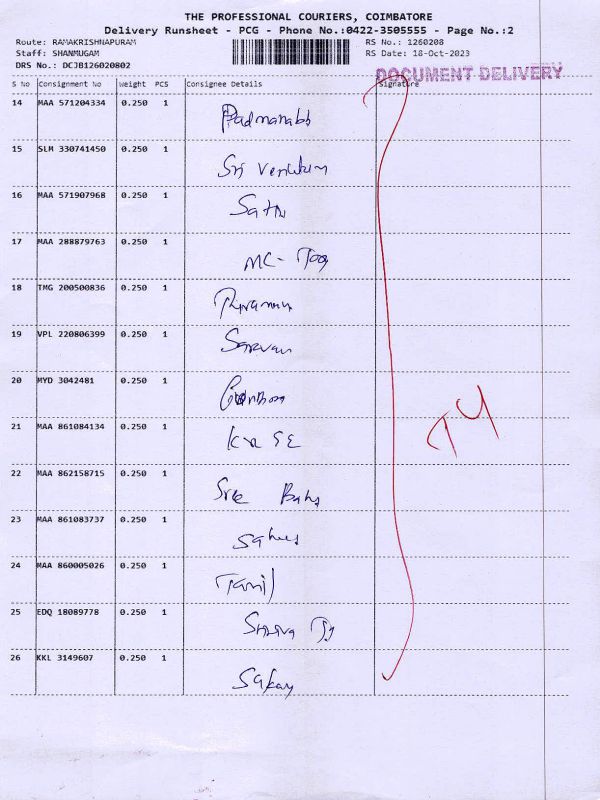 THE PROFESSIONAL COURIERS, COIMBATORE
Delivery Runsheet - PCG - Phone No.:0422-3505555 - Page No.:2
Route: RAMAKRISHNAPURAM RS No.: 1260208
Staff: SHANMUGAM RS Date: 18-Oct-2023
DRS No.: DCJB126020802
DOCUMENT DELIVERY
S No Consignment No Weight PCS Consignee Details Signature
14 MAA 571204334 0.250 1
15 SLM 330741450 0.250 1 Sri
16 MAA 571907968 0.250 1
17 MAA 288879763 0.250 1 MC-
18 TMG 200500836 0.250 1
19 VPL 220806399 0.250 1 Sarvan
20 MYD 3042481 0.250 1
21 MAA 861084134 0.250 1
22 MAA 862158715 0.250 1 Sree
23 MAA 861083737 0.250 1
24 MAA 860005026 0.250 1 Tamil
25 EDQ 18089778 0.250 1
26 KKL 3149607 0.250 1